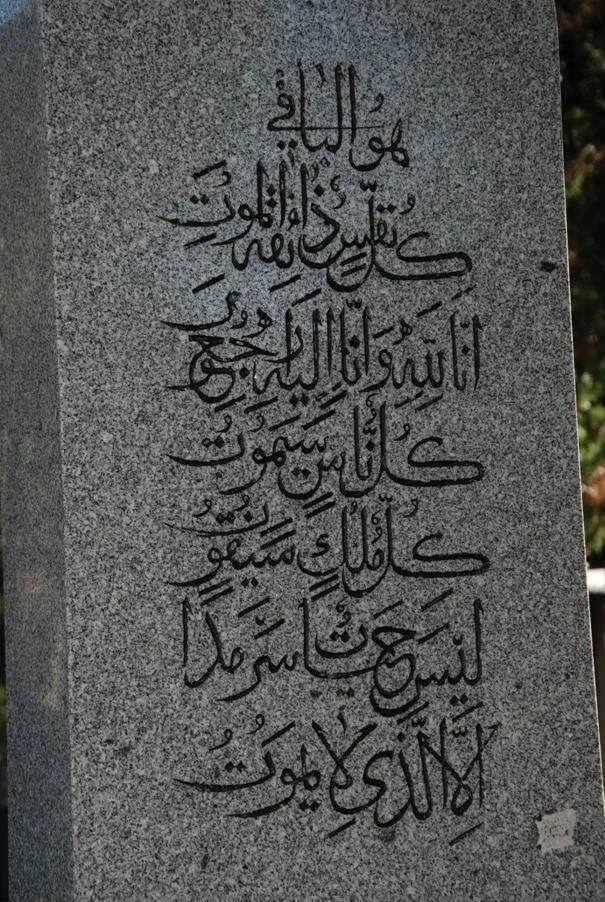 هو الباقي
كُلُّ نَفْسٍ ذَائِقَةُ الْمَوْتِ
اِنَّا لِلّٰهِ وَاِنَّا اِلَيْهِ رَاجِعُونَ
كُلُّ نَاسٍ سَيَمُوتُ
كُلُّ مُلْكٍ سَيَفُوتُ
لَيْسَ حَيَاتٌ سَرْمَدًا
اِلَّا الَّذِي لَا يَمُوتُ